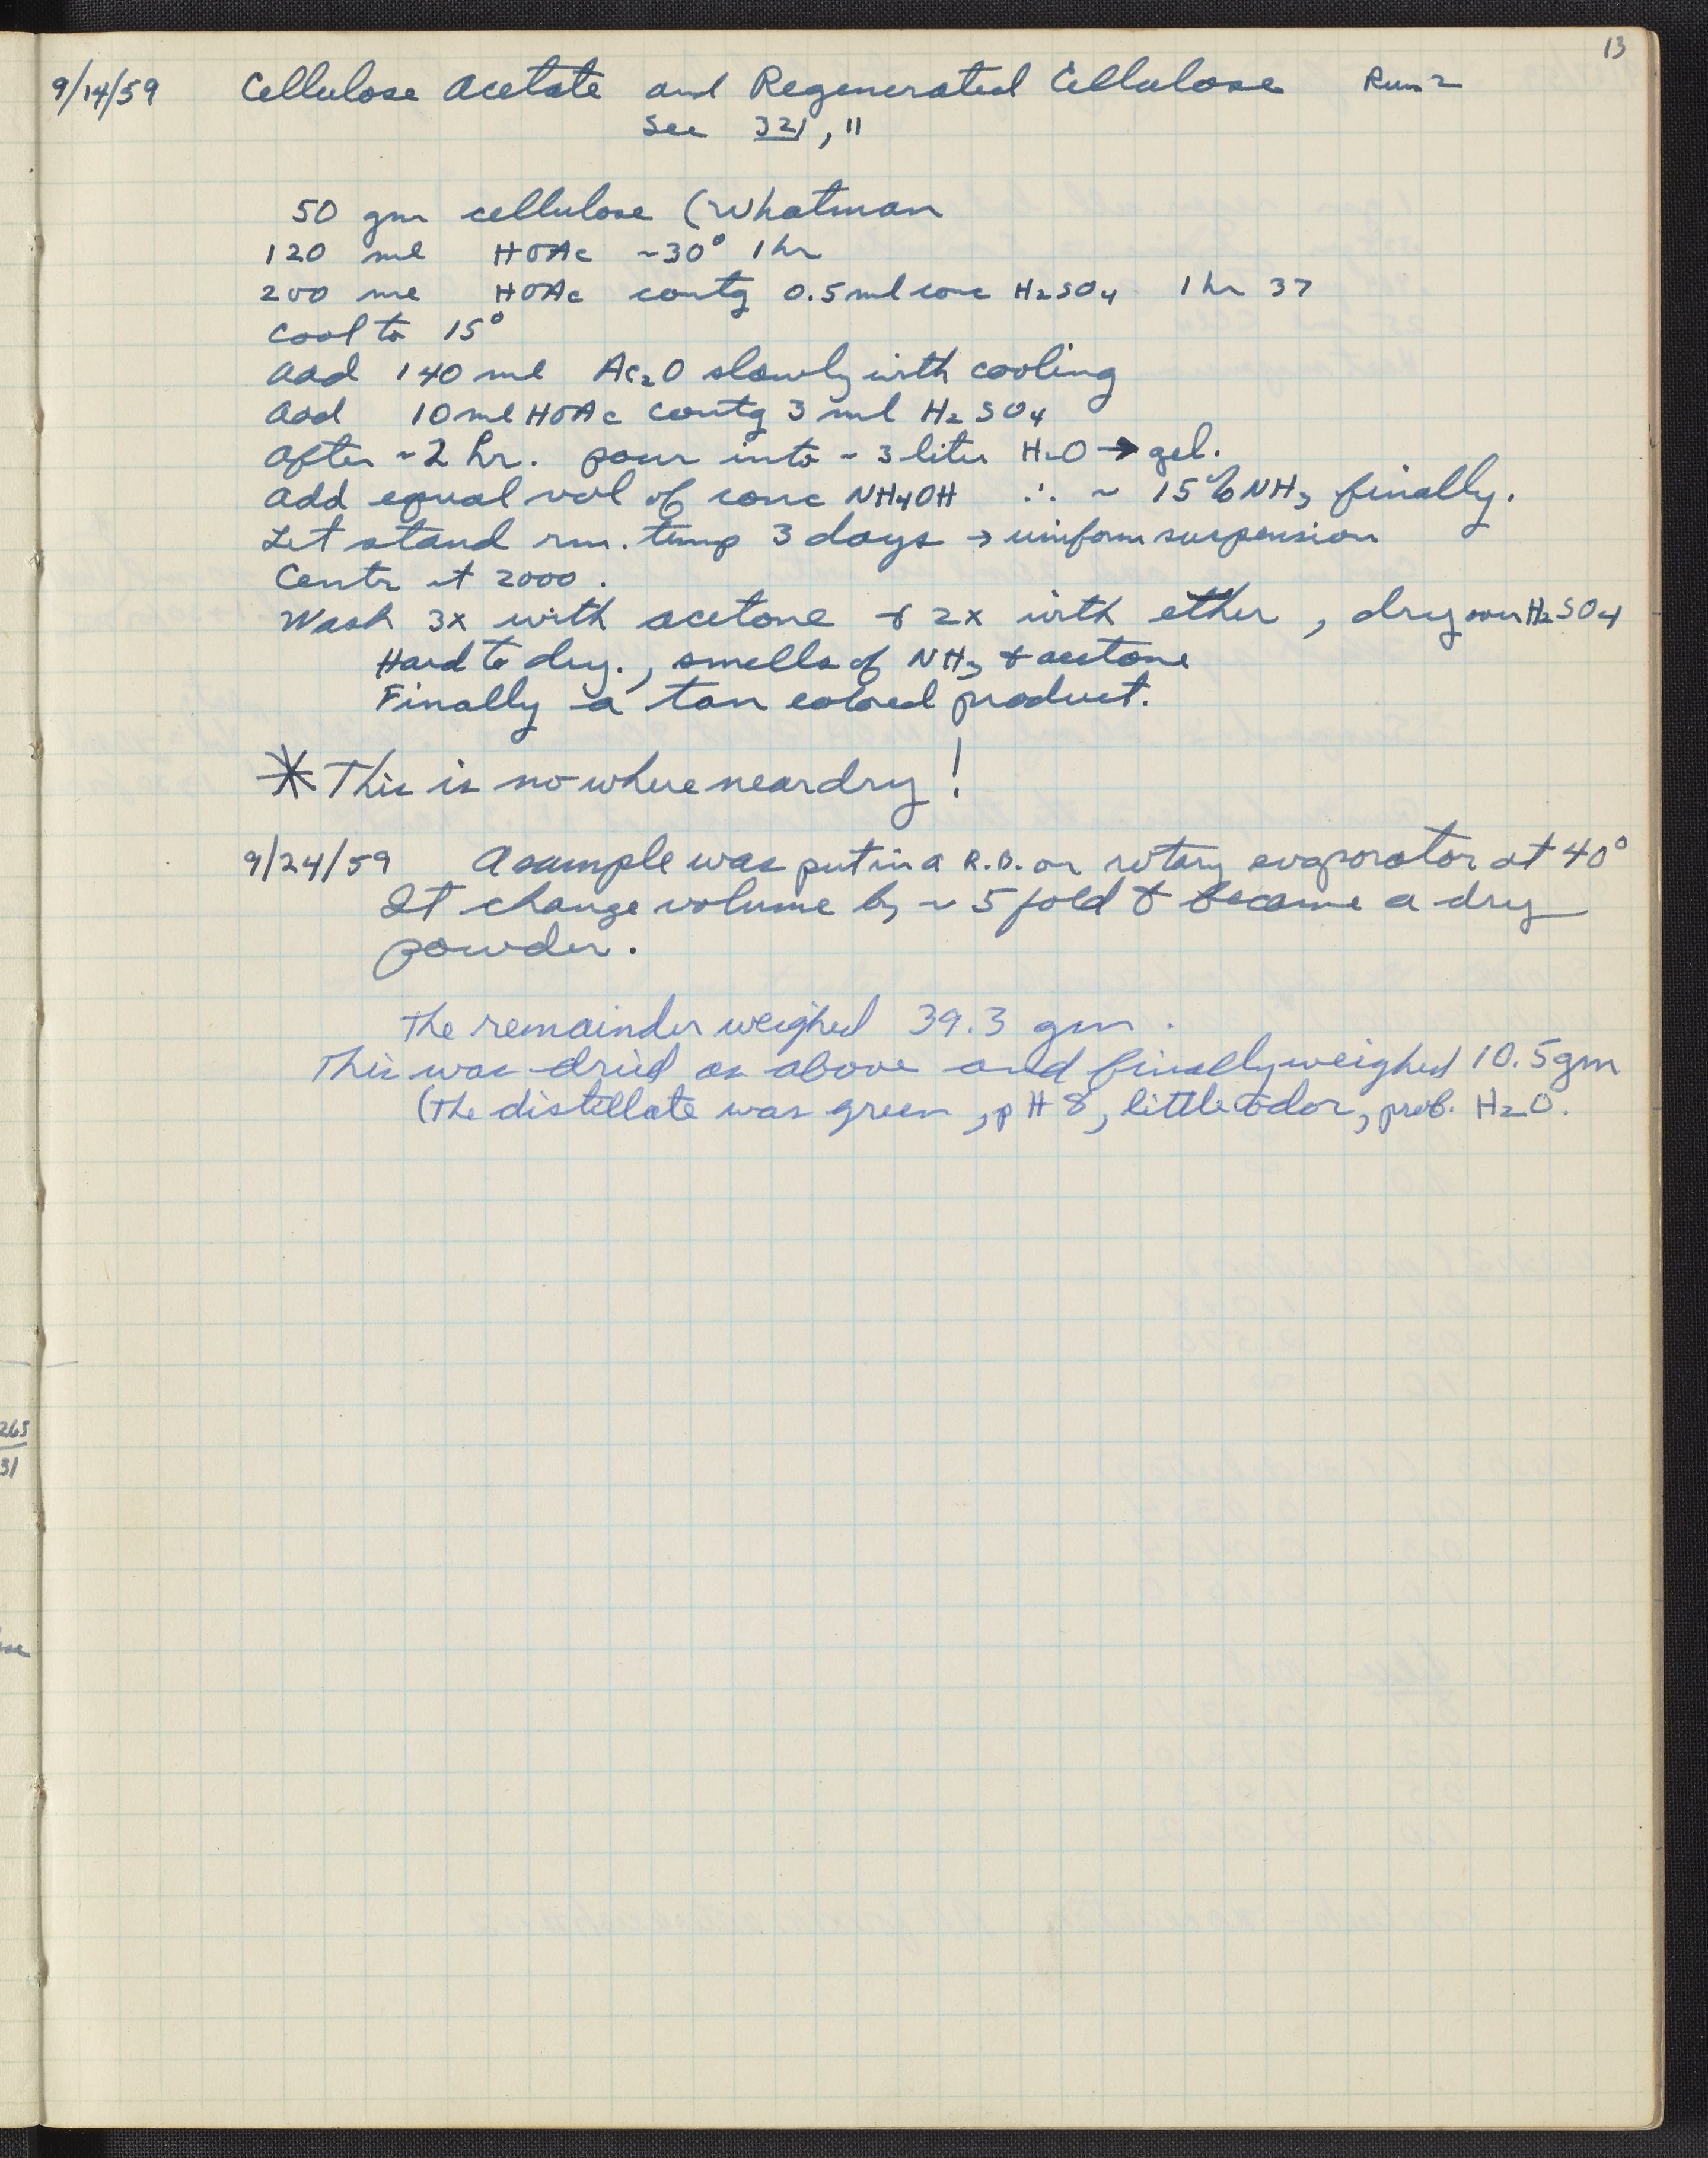 13
9/14/59 Cellulose Acetate and Regenerated Cellulose Run 2
See 321, 11
50 gm cellulose (Whatman
120 ml HOAc ~30° 1 hr
200 ml HOAc contg 0.5 ml conc H2SO4 1 hr 37
Cool to 15°
Add 140 ml Ac2O slowly with cooling
Add 10 ml HOAc contg 3 ml H2SO4
After ~2 hr. pour into ~ 3 liter H2O → gel.
Add equal vol of conc NH4OH ∴ ~ 15% NH3 finally.
Let stand rm. temp 3 days → uniform suspension
Centr at 2000.
Wash 3x with acetone & 2x with ether, dry over H2SO4
Hard to dry., smells of NH3 & acetone
Finally a tan colored product.
* This is no where near dry!
9/24/59 A sample was put in a R.B. on rotary evaporator at 40°
It change volume by ~ 5 fold & became a dry
powder.
The remainder weighed 39.3 gm.
This was dried as above and finally weighed 10.5 gm
(The distillate was green, pH 8, little odor, prob. H2O.
265
31